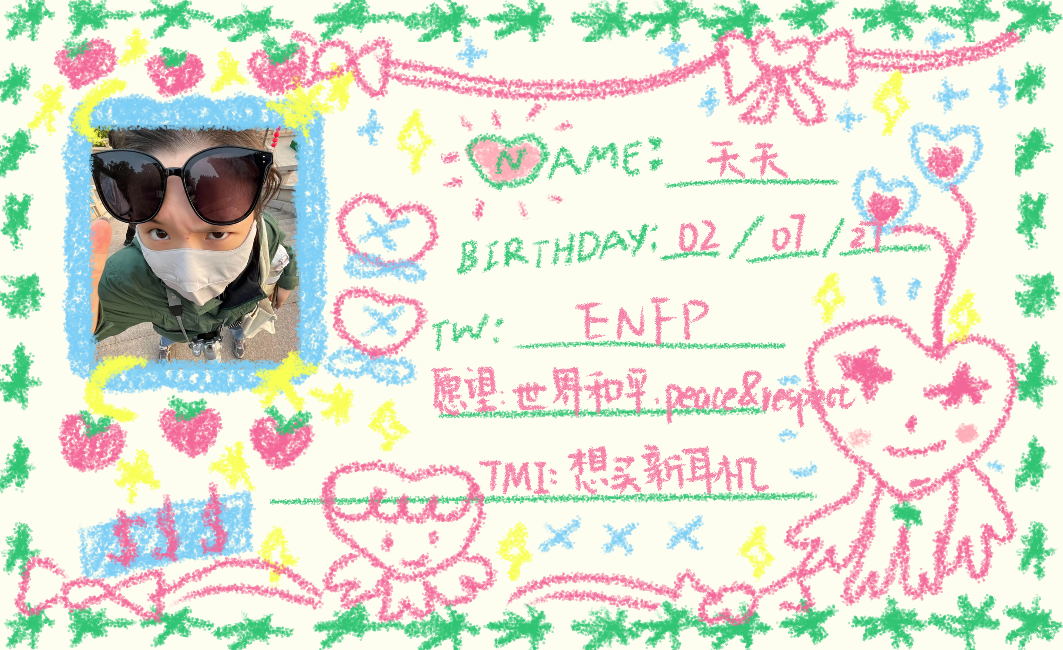 NAME: 天天
BIRTHDAY: 02 / 07 / 27
TW: ENFP
愿望: 世界和平. peace&respect
TMI: 想买新耳机
$$$